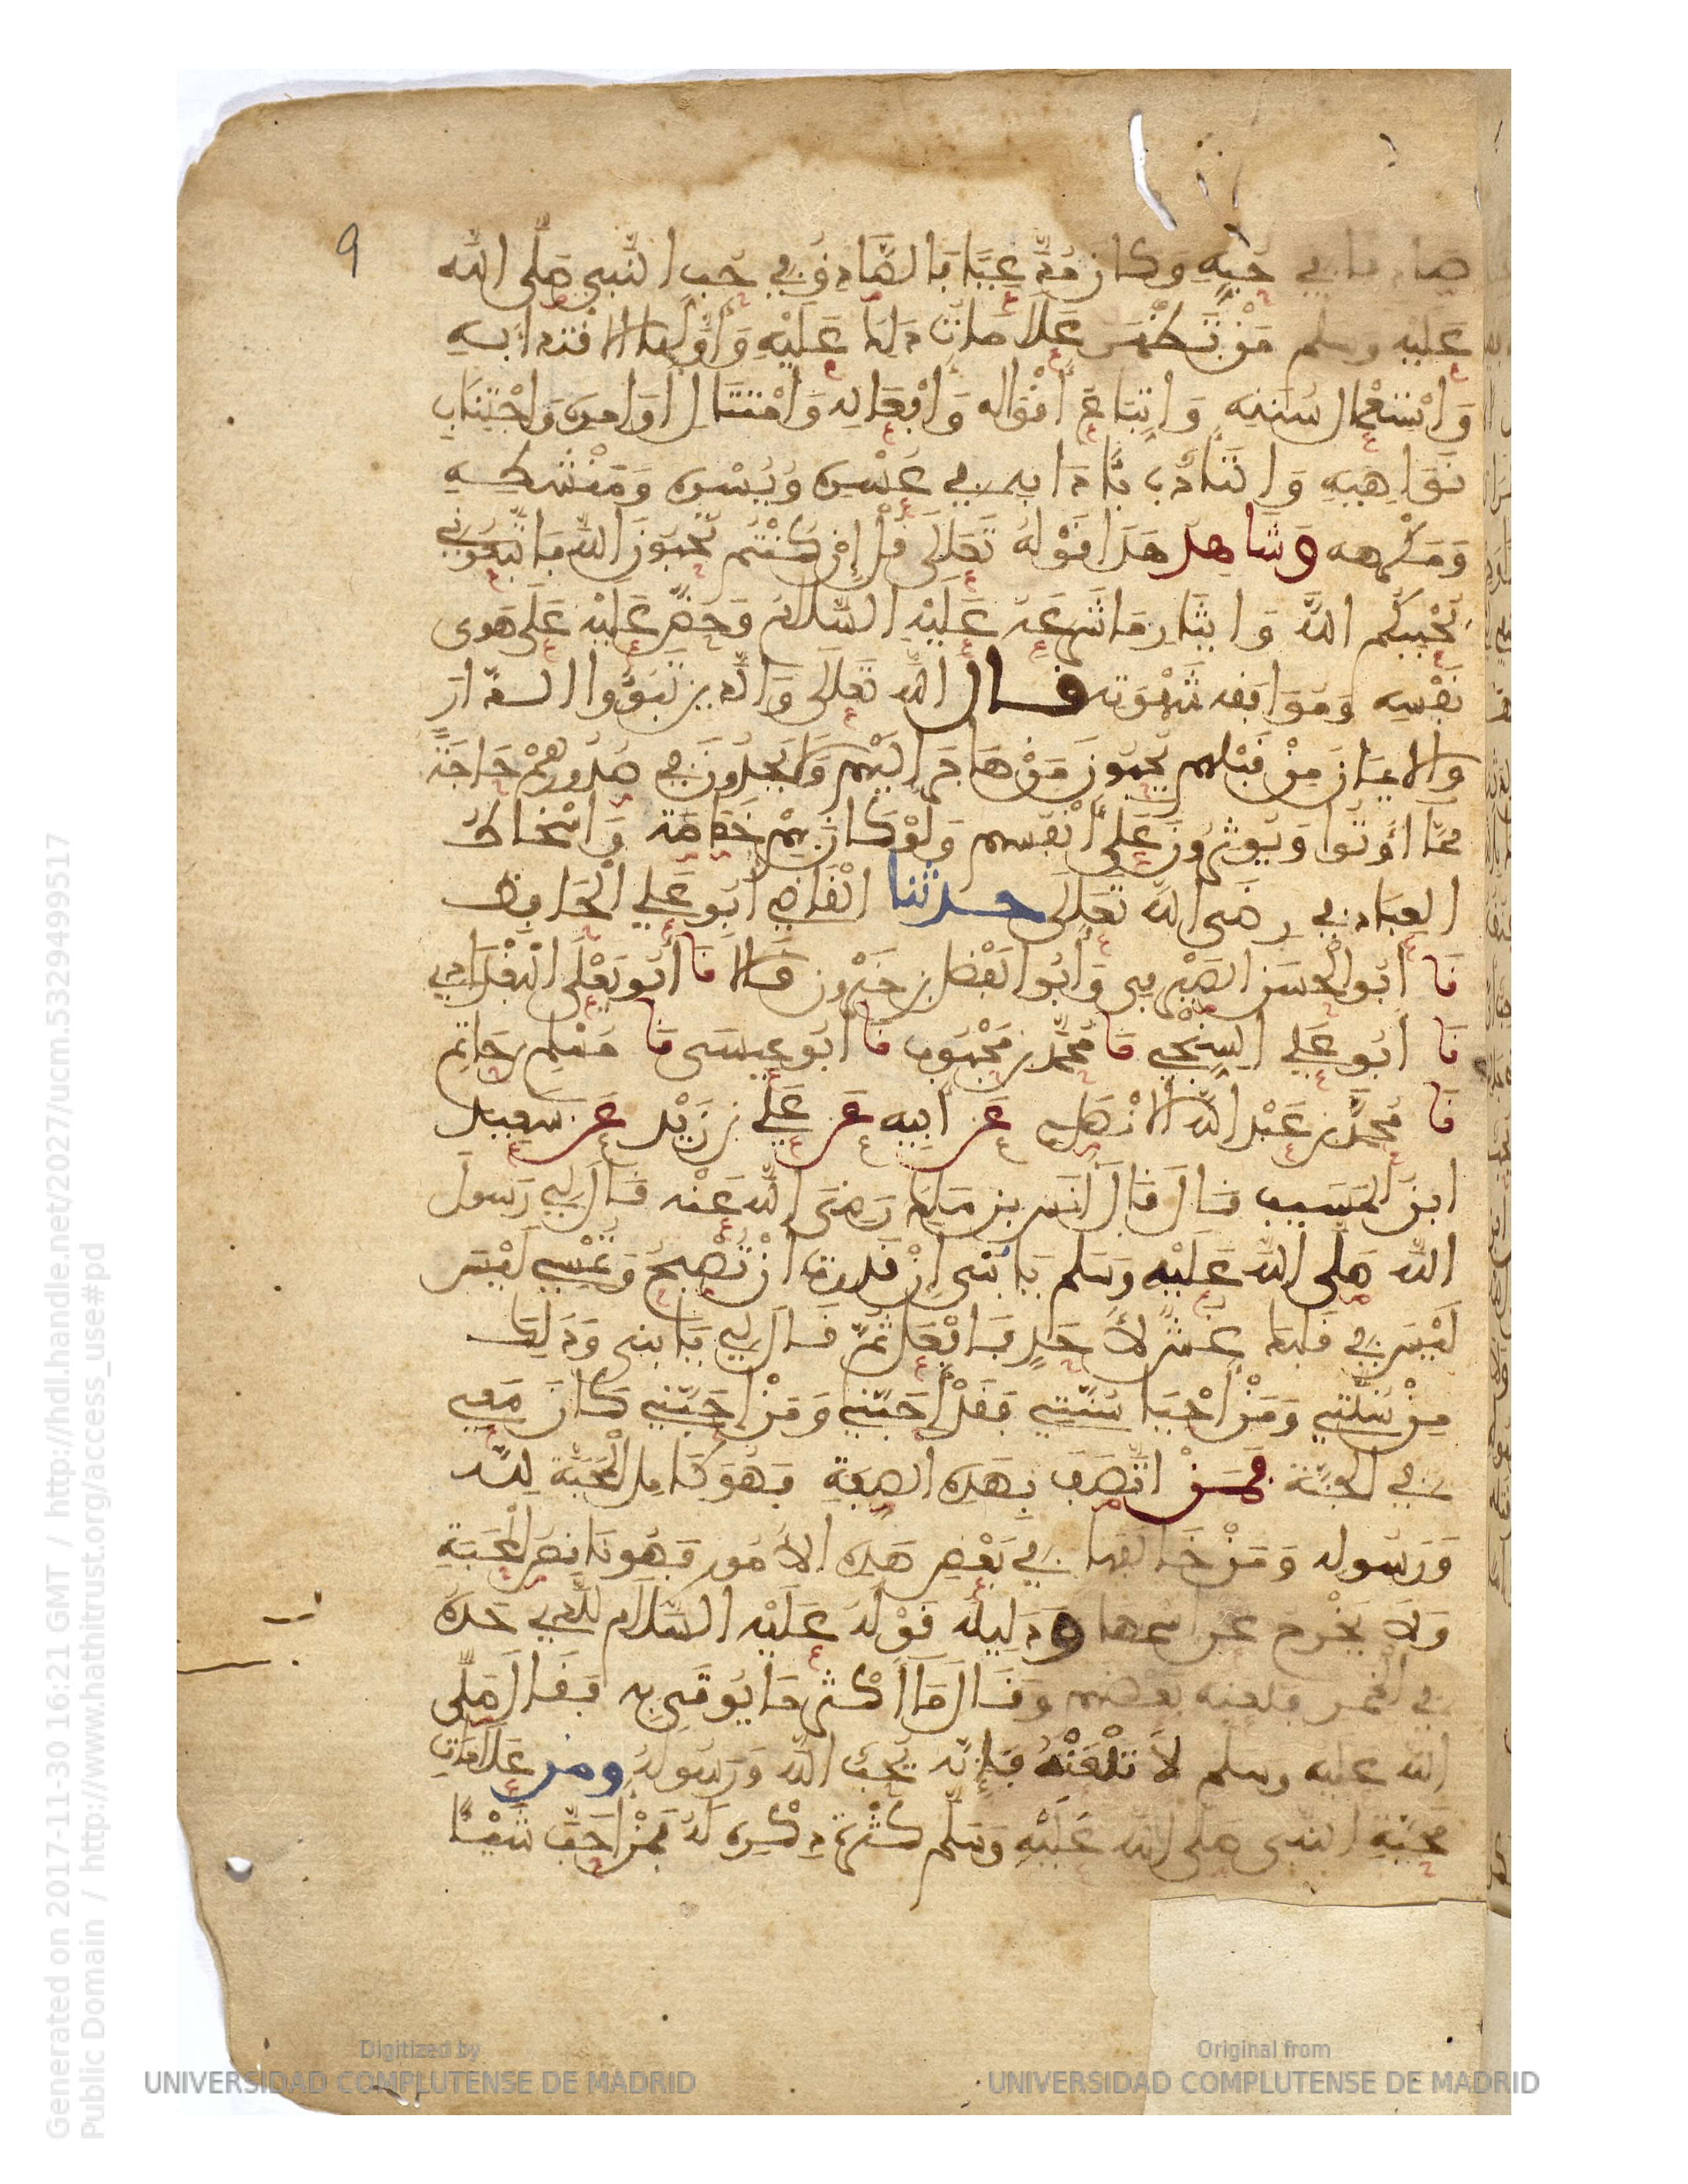 9
صادقا في حبه وكان مدعيا فالصادق في حب النبي صلى الله
عليه وسلم من تظهر علامات ذلك عليه وأولها الاقتداء به
واستعمال سنته واتباع أقواله وأفعاله وامتثال أوامره واجتناب
نواهيه والتأدب بآدابه في عسره ويسره ومنشطه
ومكرهه وشاهد هذا قوله تعالى قل إن كنتم تحبون الله فاتبعوني
يحببكم الله وإيثار ما شرعه عليه السلام وحض عليه على هوى
نفسه وموافقة شهوته قال الله تعالى والذين تبوؤوا الدار
والإيمان من قبلهم يحبون من هاجر إليهم ولا يجدون في صدورهم حاجة
مما أوتوا ويوثرون على أنفسهم ولو كان بهم خصاصة وإسخاط
العباد في رضى الله تعالى حدثنا القاضي أبو علي الحافظ
نا أبو الحسن الصيرفي وأبو الفضل بن خيرون قالا نا أبو يعلى البغدادي
نا أبو علي السنجي نا محمد بن محبوب نا أبو عيسى نا مسلم بن حاتم
نا محمد بن عبد الله الانصاري عن أبيه عن علي بن زيد عن سعيد
ابن المسيب قال قال أنس بن مالك رضي الله عنه قال لي رسول
الله صلى الله عليه وسلم يا بني إن قدرت أن تصبح وتمسي ليس
ليس في قلبك غش لأحد فافعل ثم قال لي يا بني وذلك
من سنتي ومن أحيا سنتي فقد أحبني ومن أحبني كان معي
في الجنة فمن اتصف بهذه الصفة فهو كامل المحبة لله
ورسوله ومن خالفها في بعض هذه الأمور فهو ناقص المحبة
ولا يخرج عن اسمها ودليله قوله عليه السلام للذي حده
في الخمر فلعنه بعضهم وقال ما أكثر ما يوتى به فقال صلى
الله عليه وسلم لا تلعنه فإنه يحب الله ورسوله ومن علامات
محبة النبي صلى الله عليه وسلم كثرة ذكره له فمن أحب شيئا
Generated on 2017-11-30 16:21 GMT / http://hdl.handle.net/2027/ucm.5329499517
Public Domain / http://www.hathitrust.org/access_use#pd
Digitized by
UNIVERSIDAD COMPLUTENSE DE MADRID
Original from
UNIVERSIDAD COMPLUTENSE DE MADRID